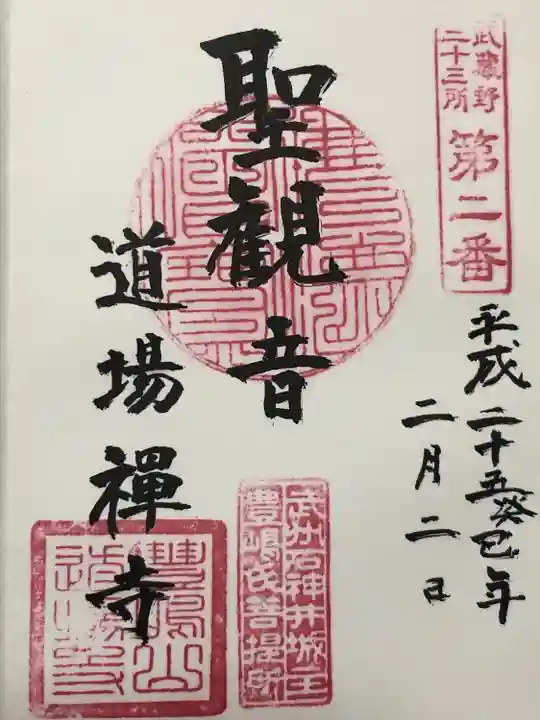 武蔵野
二十三所
第二番
平成二十五癸巳年
二月二日
聖観音
道場禪寺
武州石神井城主
豊嶋氏菩提所
豐嶋山
道場寺